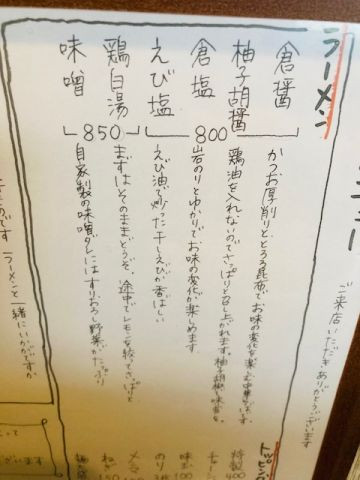 ご来店いただきありがとうございます
ラーメン
倉醤
柚子胡醤
倉塩
えび塩
800
鶏白湯
味噌
850
かつお厚削りととろろ昆布でお味の変化を楽しむ
鶏油を入れないのでさっぱりとなし上がれます。柚子胡椒
岩のりとゆかりでお味の変化が楽しめます。
えび油で炒った干しえびが香ばしい
まずはそのままどうぞ。途中でレモンを絞ってさっぱりと
自家製の味噌ダレにはすりおろし野菜がたっぷり
トッピング
特製 400
チャーシュー
味玉 100
のり
メンマ
ねぎ
のです ラーメンと一緒にいかがですか